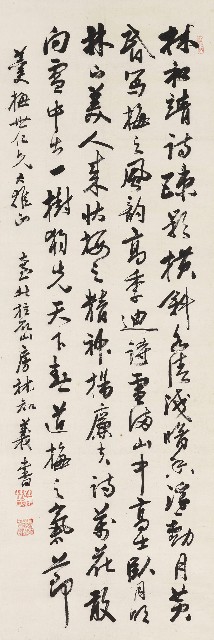 林和靖詩疎影橫斜水清淺暗香浮動月黃
昏寫梅之風韻高季迪詩雪滿山中高士臥月明
林下美人來狀梅之精神楊廉夫詩萬花敢
向雪中出一樹獨先天下春道梅之氣節
梅世仁兄大雅正
山房林知義書